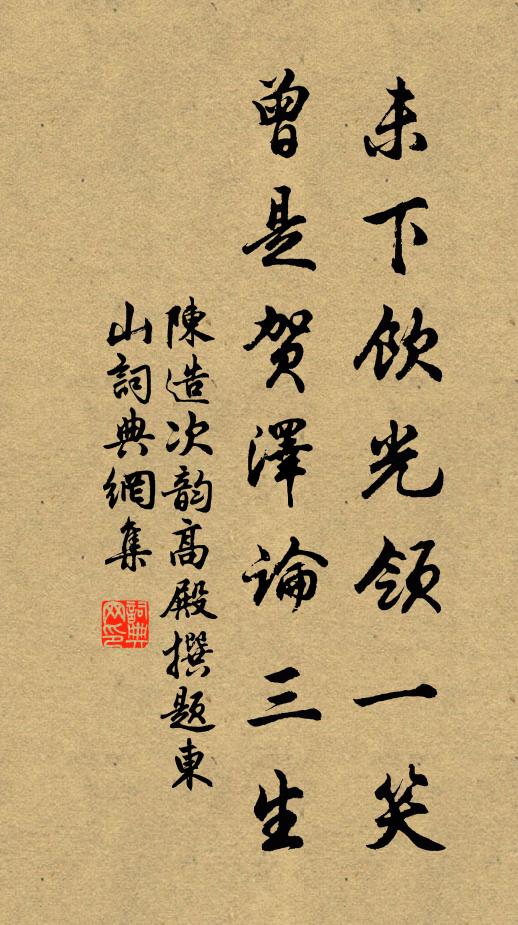 未下飲光領一笑
曾是贺澤論三生
陳造次韵高殿撰题東
山詞典網集
詞典網印